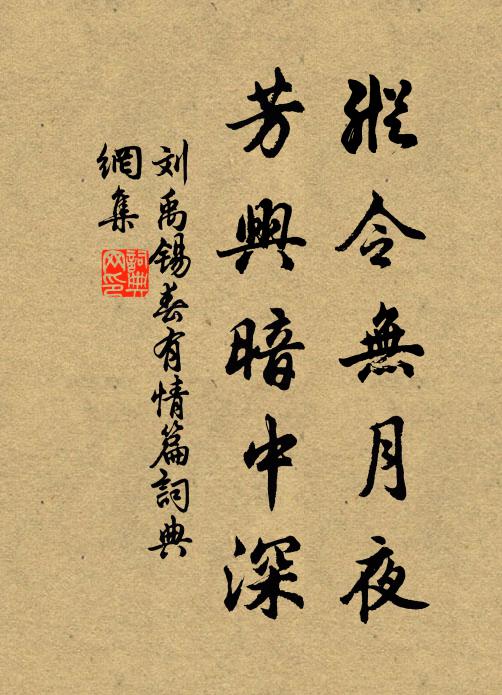 縱令無月夜
芳興暗中深
刘禹锡春有情篇詞典
網集
詞典网印